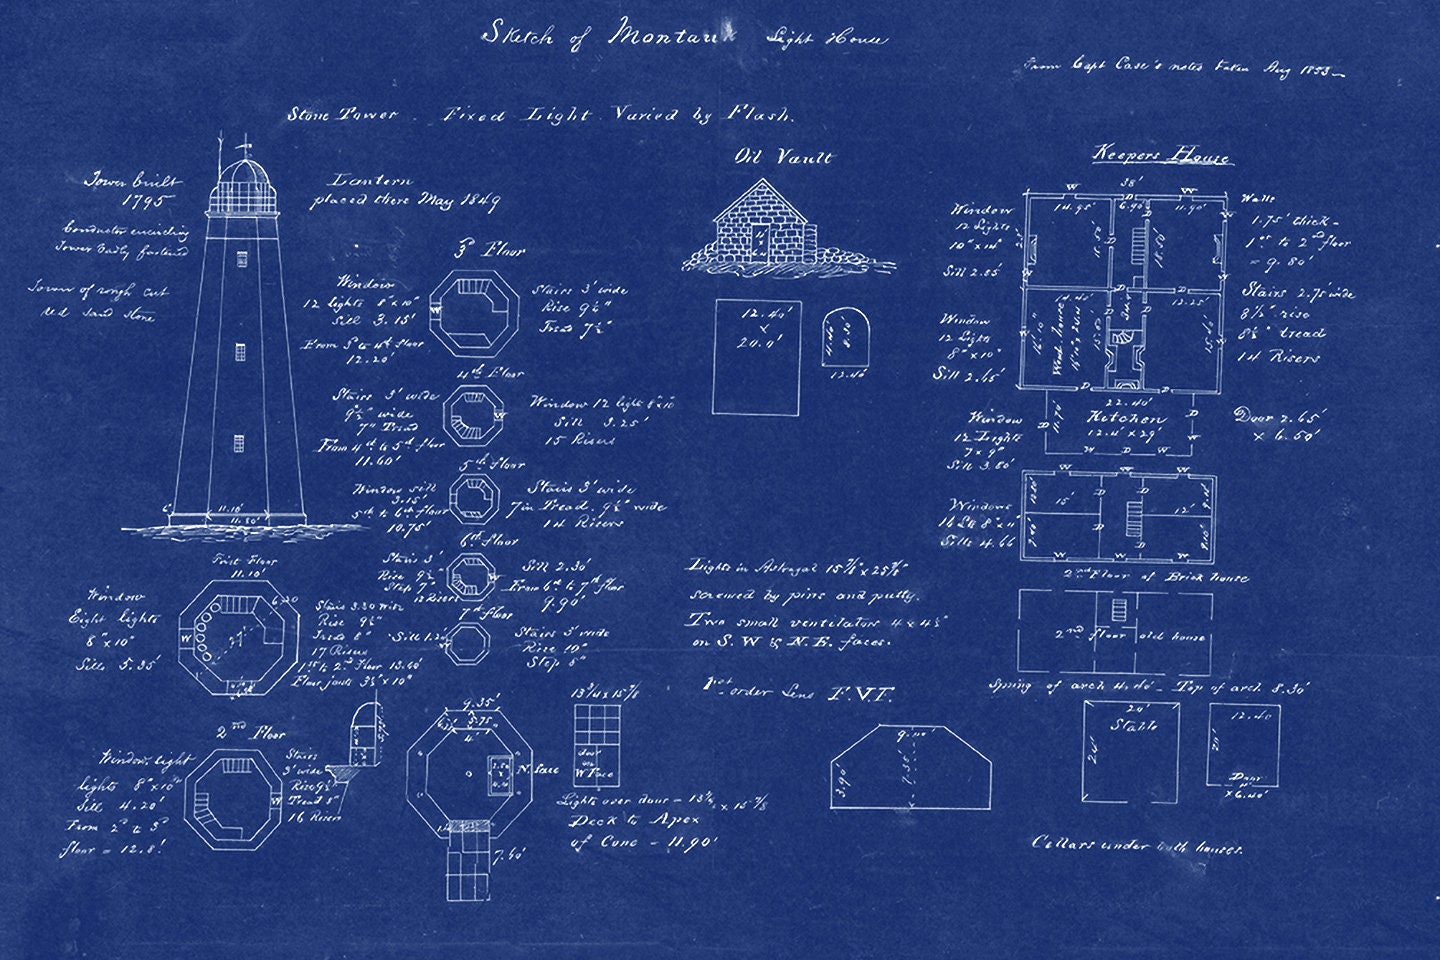 Sketch of Montauk Light House
From Capt Case's notes taken Aug 1853
Stone Tower. Fixed Light Varied by Flash.
Tower built
1795
Conductor encircling
Tower badly fastened
Tower of rough cut
red sand stone
Lantern
placed there May 1849
6'
11.10'
11.80'
3d Floor
Window
12 lights 8"x10"
Sill 3.15'
From 3d to 4th floor
12.20'
W
Stairs 3' wide
Rise 9½"
Tread 7½"
4th Floor
Stairs 3' wide
7" Tread
From 4th to 5th floor
11.60'
W
Window 12 light 8"x10"
Sill 3.25'
15 Risers
5th floor
Window sill
3.15'
5th to 6th floor
10.75'
Stairs 3' wide
7 in Tread. 9½" wide
14 Risers
6th floor
Stairs 3'
Rise 9½"
Step 7"
12 Risers
W
Sill 2.30'
From 6th to 7th floor
9.90'
7th floor
Sill 1.20'
W
Stairs 3' wide
Rise 10"
Step 8"
First Floor
11.10'
Window
Eight lights
8"x10"
Sills 5.35'
W
6.20
Stairs 3.30 wide
Rise 9½"
Tread 8"
17 Risers
1st to 2d Floor 13.60'
Floor joists 3½"x10"
2nd Floor
Window. light
lights 8"x10"
Sill 4.20'
From 2d to 3d
floor = 12.8'
W
Stairs
3' wide
Rise 9½
Tread 8"
16 Risers
9.35'
5.75
4'
N. face
7.40'
13¾ x 15⅞
door
on
W Face
Lights over door = 13¾ x 15⅞
Deck to Apex
of Cone = 11.90'
Oil Vault
12.40'
x
20.0'
4.40'
8.30'
12.40'
Lights in Astragal 15⅞"x25⅝"
screwed by pins and putty.
Two small ventilators 4 x 4½"
on S.W & N.E. faces.
1st order Lens F.V.F.
3.90'
9.40'
7.35'
Keepers House
38'
W
D
W
14.95'
6.90'
11.90'
18.50'
Window
12 Lights
10"x14"
Sill 2.85'
Walls
1.75' thick
1st to 2nd floor
= 9.80'
Stairs 2.75 wide
8½" rise
8½" tread
14 Risers
Window
12 Lights
8"x10"
Sill 2.45'
14.40'
12.25'
16.10"
15.60'
22.40'
11.70'
Kitchen
12.4' x 29'
Window
12 Lights
7"x9"
Sill 3.80'
Door 2.65'
x 6.50'
W D W
W W W
15'
12'
Windows
16 Lts 8"x11"
Sills 4.66
2nd Floor of Brick house
2nd floor old house
Spring of arch 4.40' - Top of arch 8.30'
20'
Stable
12.40
20'
Door
x6.40'
Cellars under both houses.